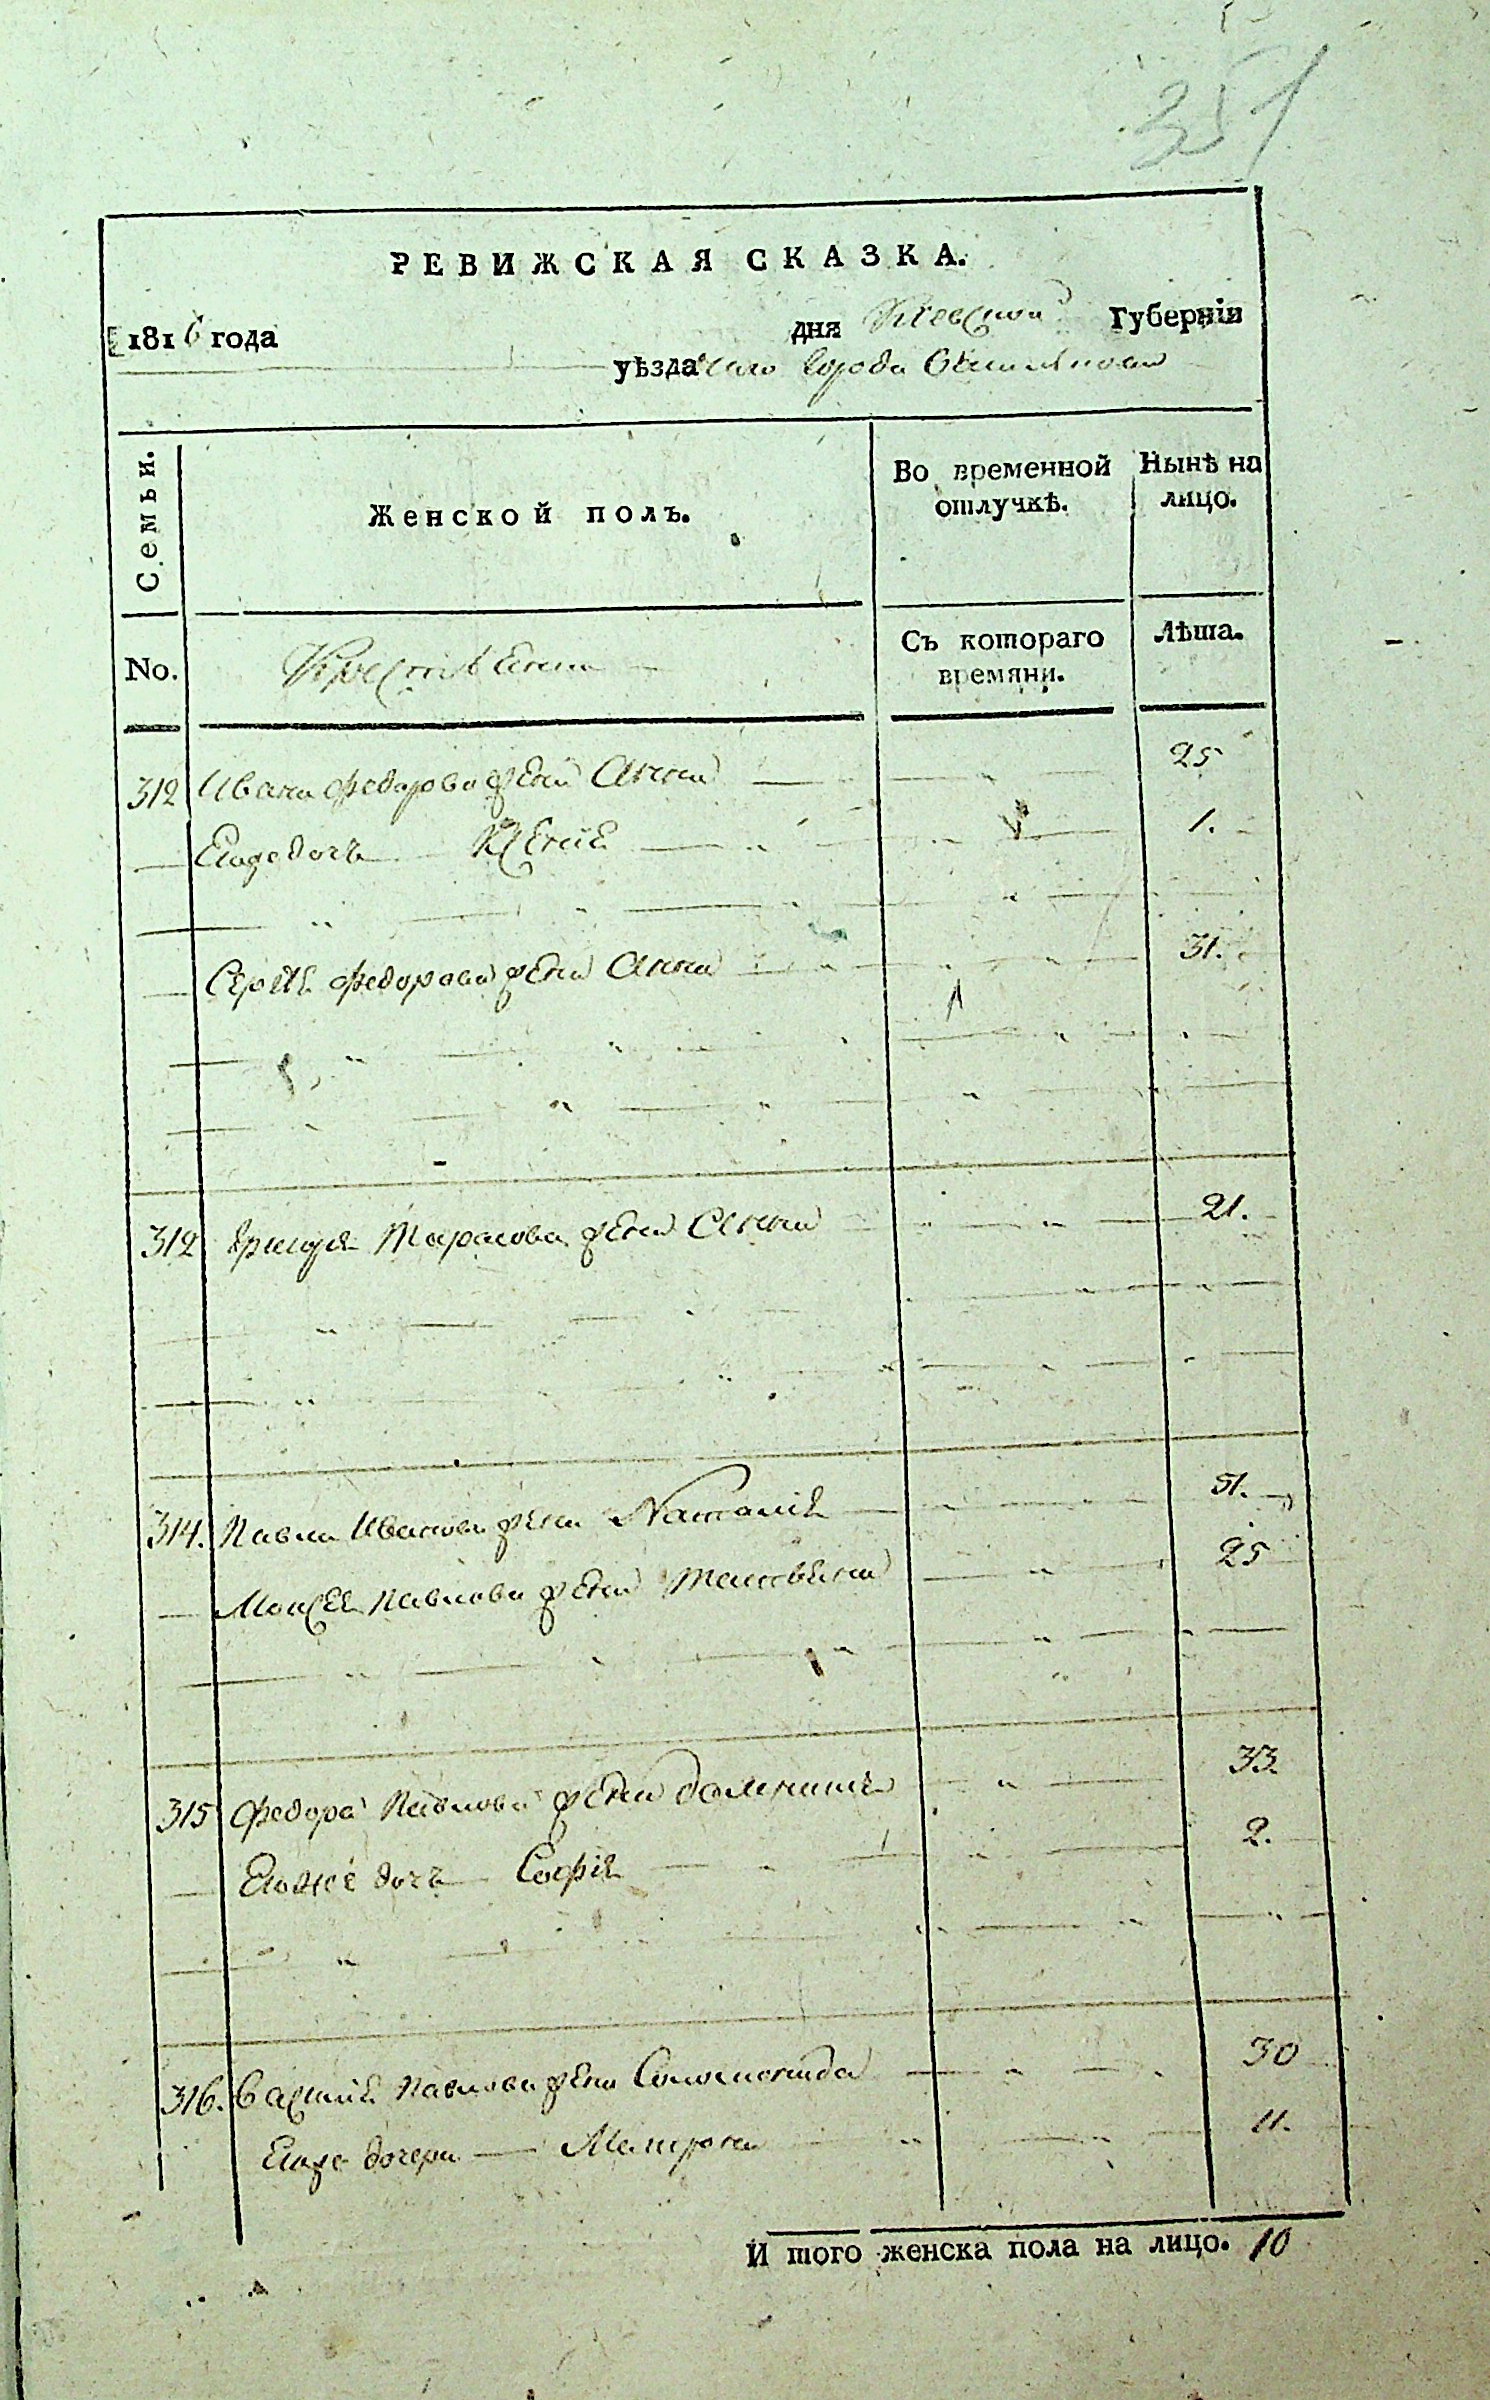 351
РЕВИЖСКАЯ СКАЗКА.
1816 года дня Киевской Губерніи
уѣзда города
Семьи.
Женской полъ.
Во временной отлучкѣ.
Нынѣ на лицо.
No.
Съ котораго времяни.
Лѣта.
312 Ивана Федорова жена Анна 25
Егоже дочь Ксенія 1.
Сергѣя Федорова жена Анна 31.
312 Тарасова жена Анна 21.
314. Павла Иванова жена Наталія 51.
Моисея Павлова жена 25
315 Федора Павлова жена 33.
Егоже дочь Софія 2.
316. Василія Павлова жена Соломонида 30
Егоже дочери Матрона 11.
И того женска пола на лицо. 10